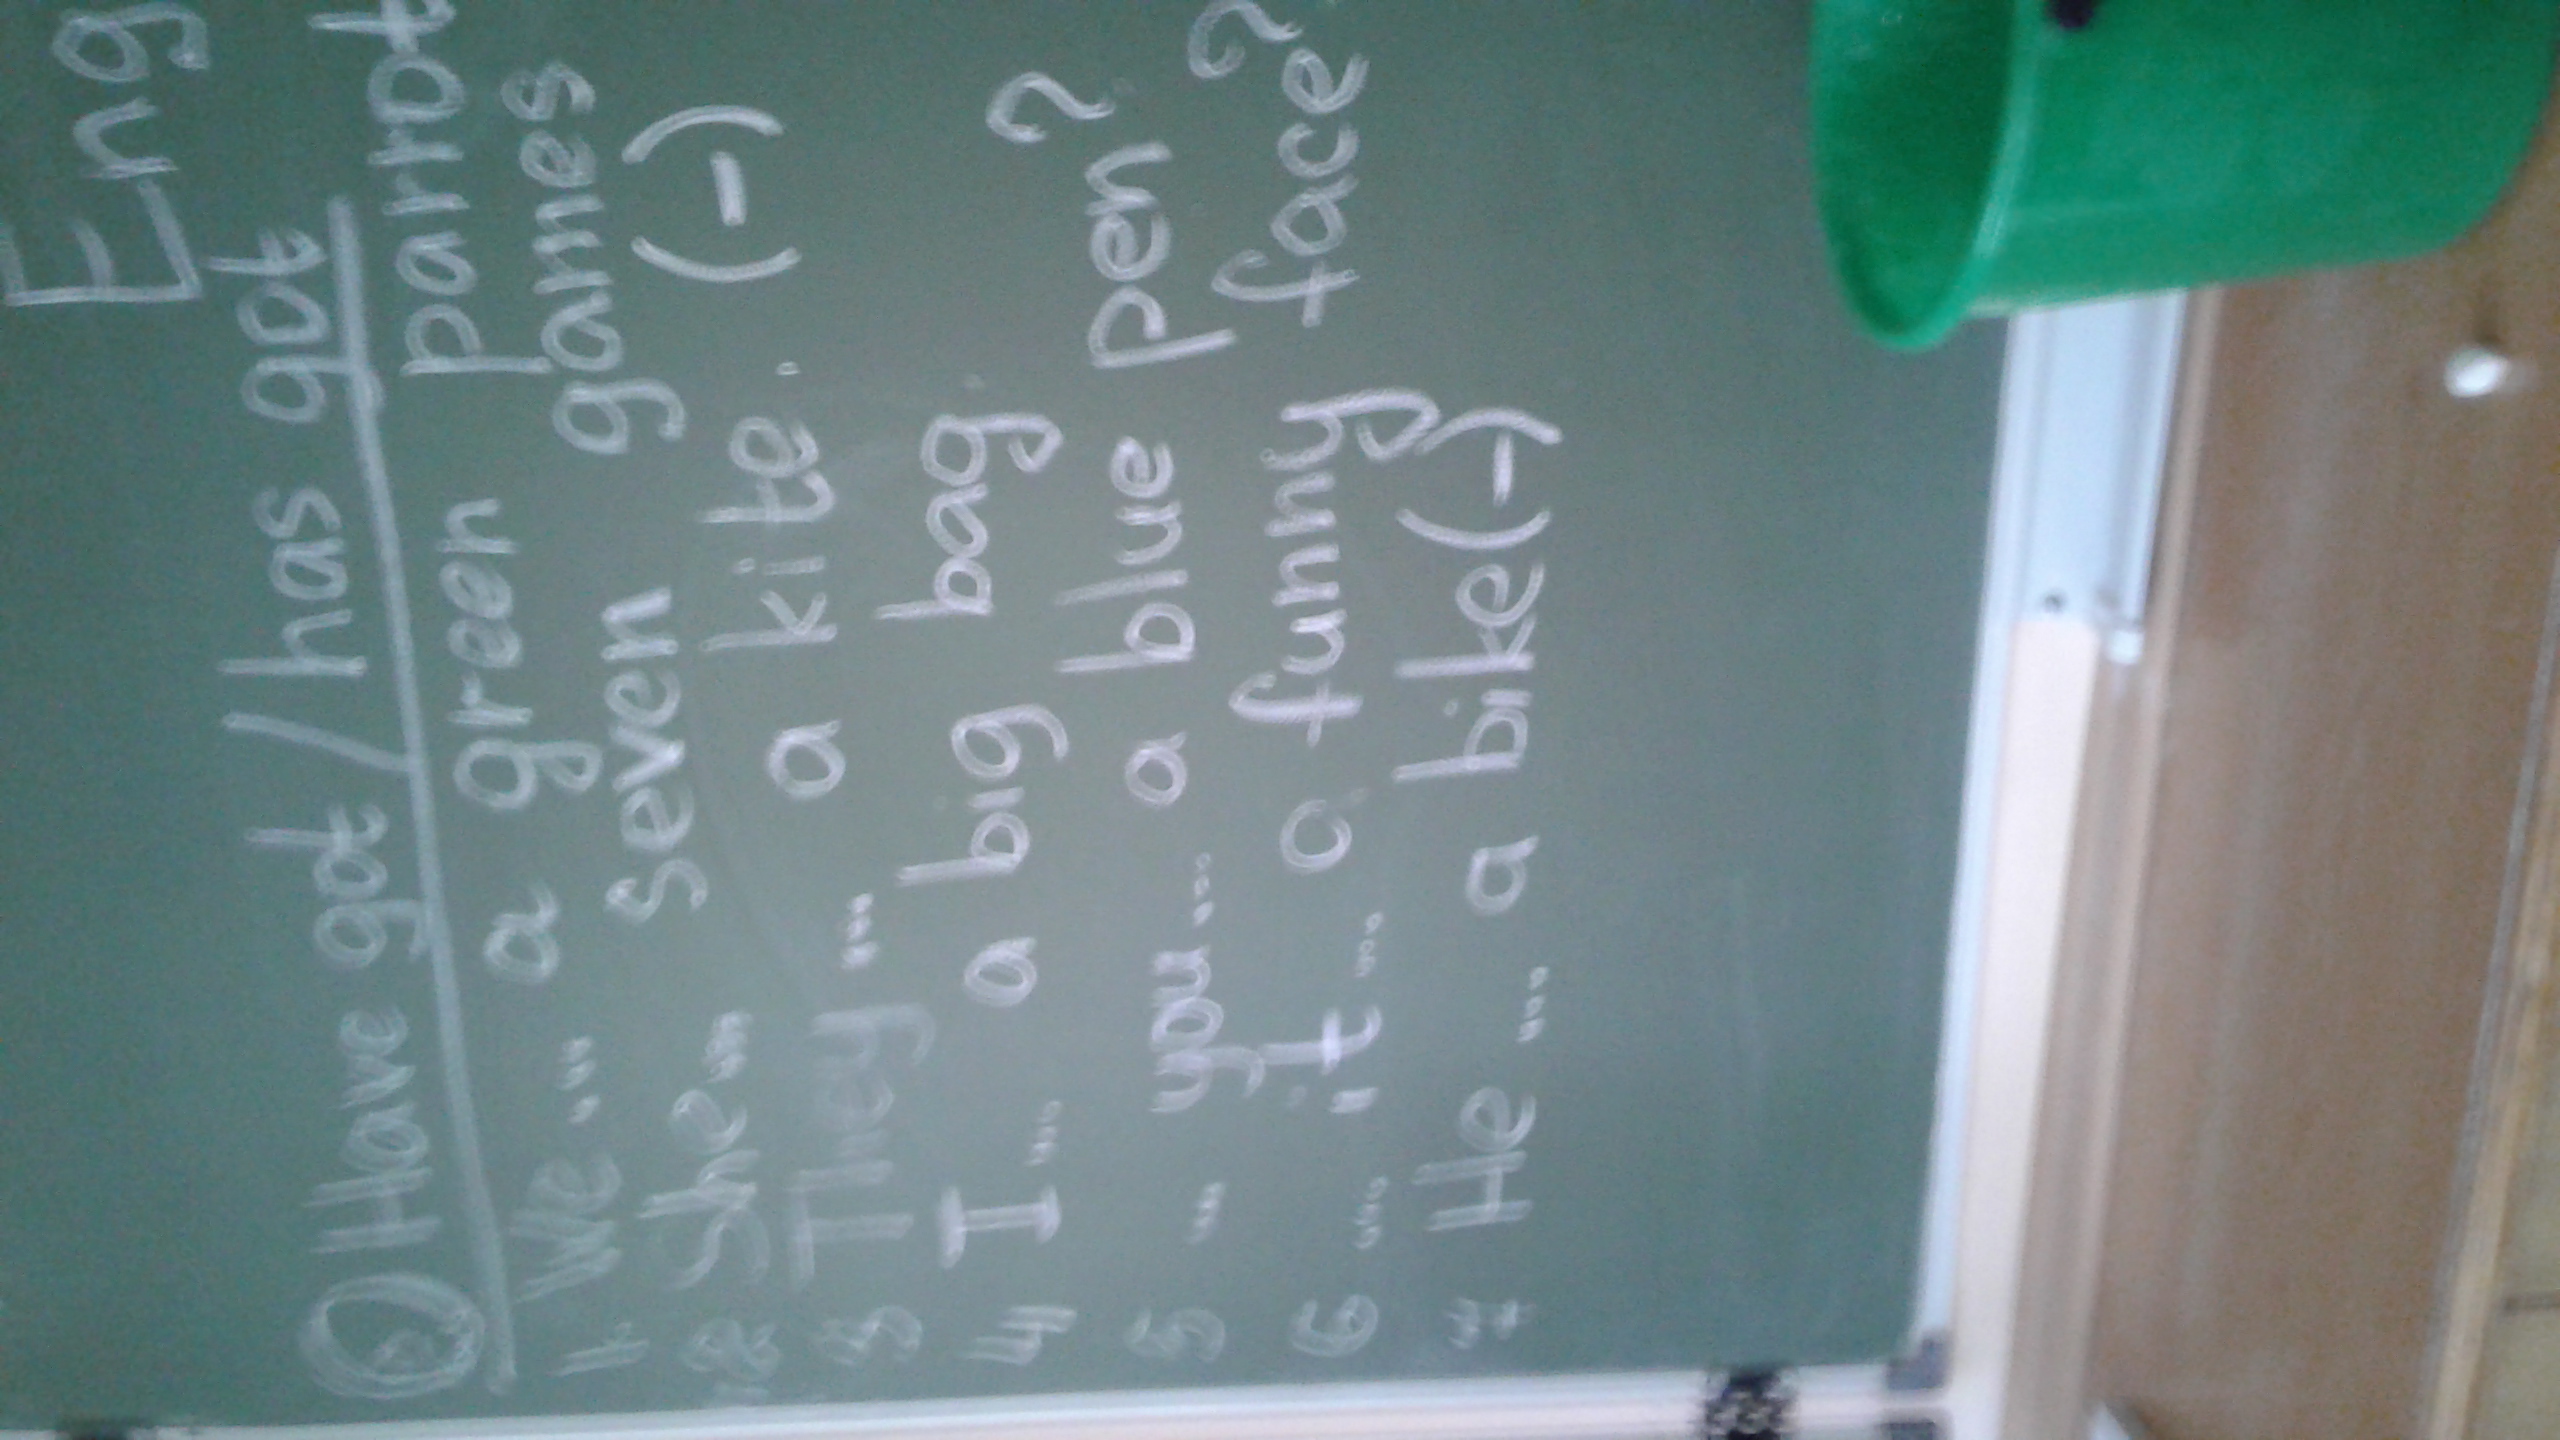 Eng
② Have got / has got
1. We ... a green parrot
2. She ... seven games
3 They ... a kite. (-)
4 I ... a big bag.
5 ... you ... a blue pen?
6 ... it ... a funny face?
7 He ... a bike (-)
?